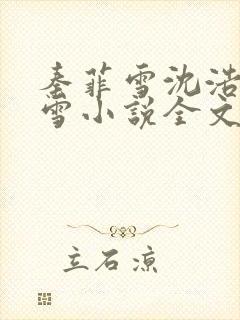 秦菲雪沈浩
雪小说全文
立石凉